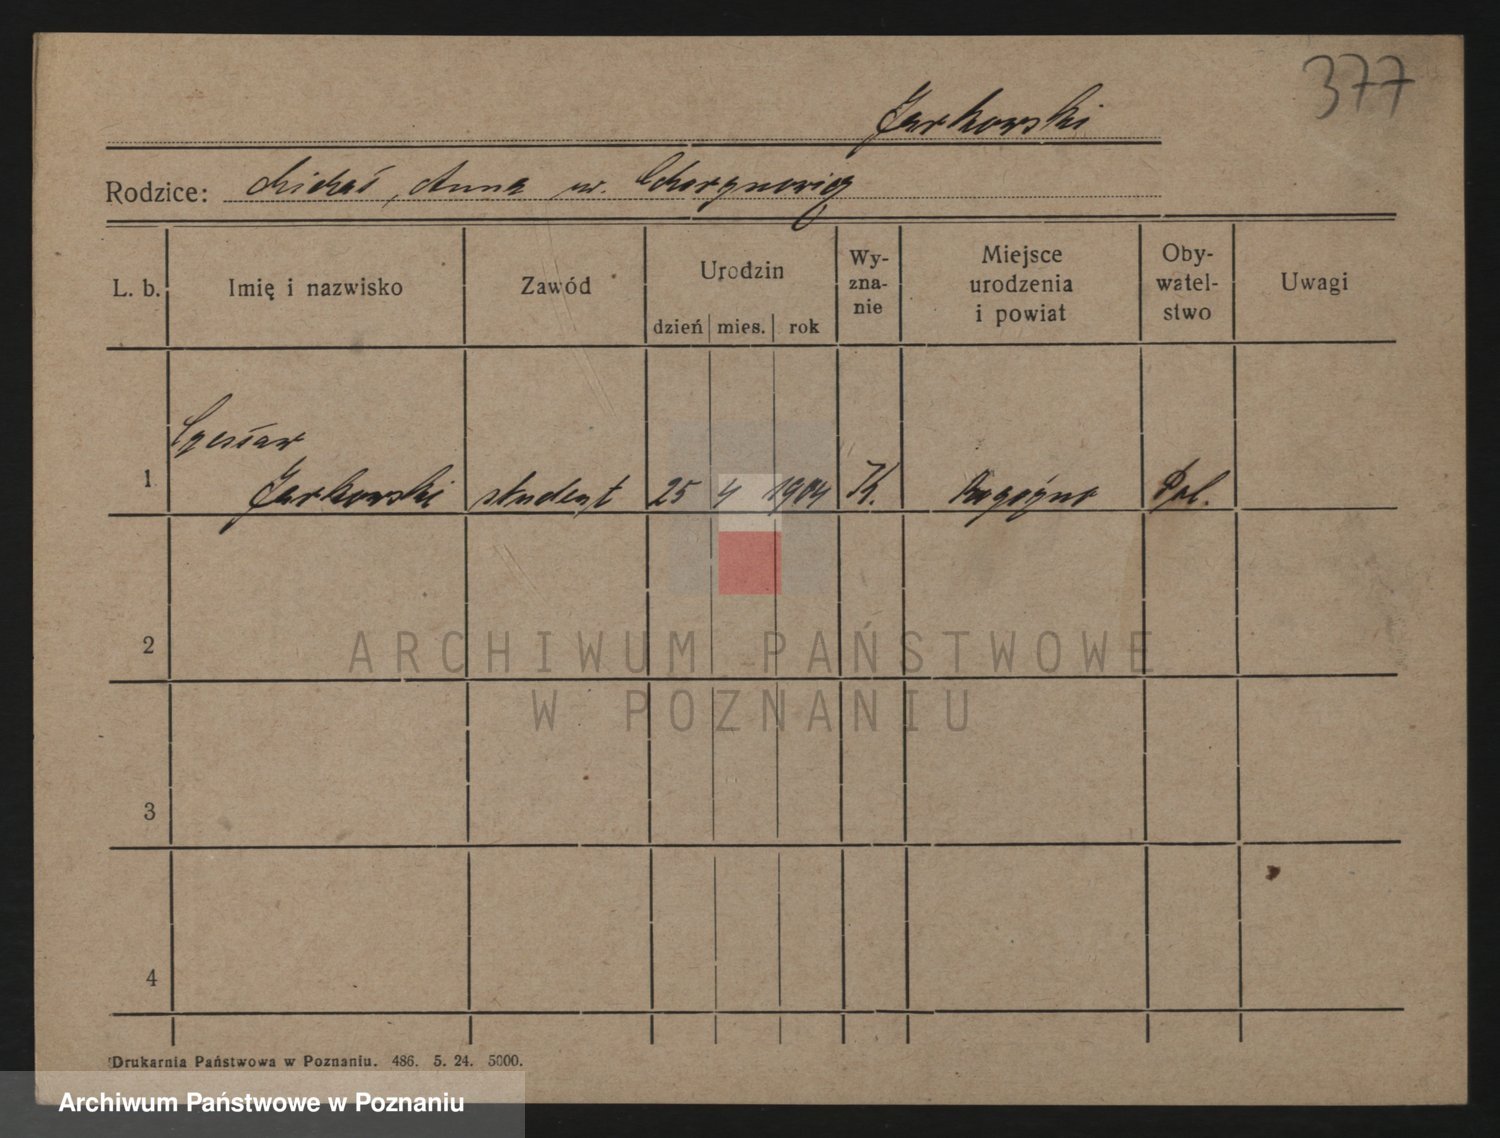 377
Jarkowski
Rodzice: Michał, Anna ur.
L. b. Imię i nazwisko Zawód Urodzin dzień mies. rok Wy-zna-nie Miejsce urodzenia i powiat Oby-watel-stwo Uwagi
Czesław
1 Jarkowski student 25 4 1904 K. Rogoźno Pol.
2
ARCHIWUM PAŃSTWOWE
W POZNANIU
3
4
Drukarnia Państwowa w Poznaniu. 486. 5. 24. 5000.
Archiwum Państwowe w Poznaniu